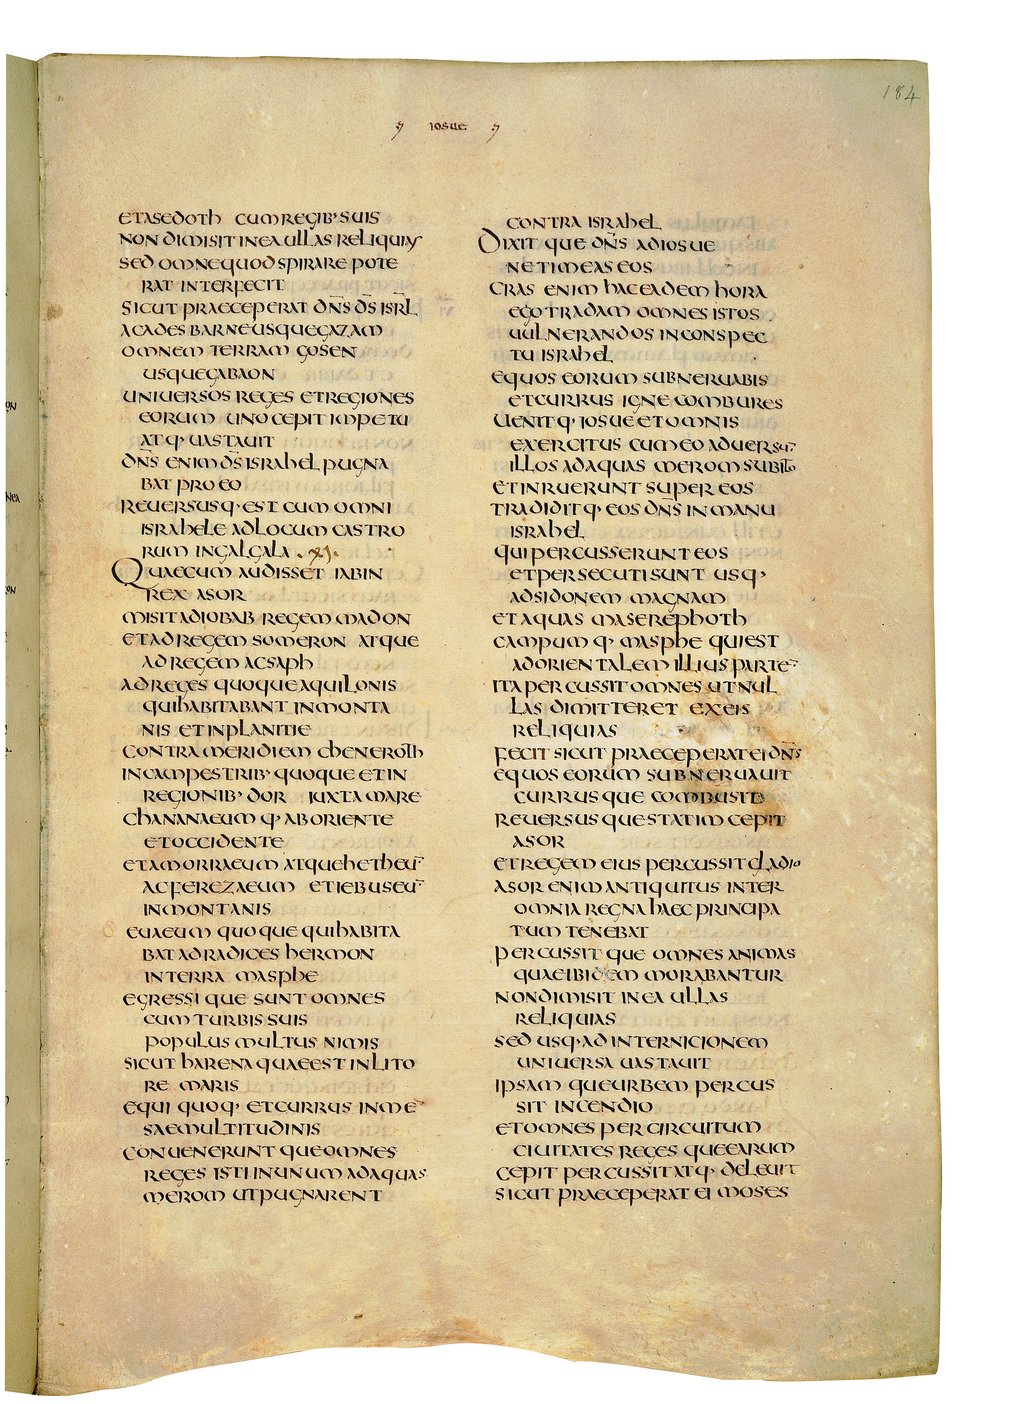 184
IOSUE
ETASEDOTH CUM REGIB' SUIS
NON DIMISIT IN EA ULLAS RELIQUIAS
SED OMNE QUOD SPIRARE POTE
RAT INTERFECIT
SICUT PRAECEPERAT DN̄S D̄S ISRL
A CADES BARNE USQUE GAZAM
OMNEM TERRAM GOSEN
USQUE GABAON
UNIUERSOS REGES ET REGIONES
EORUM UNO CEPIT IMPETU
ATQ' UASTAUIT
DN̄S ENIM D̄S ISRAHEL PUGNA
BAT PRO EO
REUERSUSQ' EST CUM OMNI
ISRAHELE AD LOCUM CASTRO
RUM IN GALGALA . XI .
QUAE CUM AUDISSET IABIN
REX ASOR
MISIT AD IOBAB REGEM MADON
ET AD REGEM SOMERON ATQUE
AD REGEM ACSAPH
AD REGES QUOQUE AQUILONIS
QUI HABITABANT IN MONTA
NIS ET IN PLANITIE
CONTRA MERIDIEM CHENEROTH
IN CAMPESTRIB' QUOQUE ET IN
REGIONIB' DOR IUXTA MARE
CHANANAEUM Q' AB ORIENTE
ET OCCIDENTE
ET AMORRAEUM ATQUE HETHEU¯
AC FEREZAEUM ET IEBUSEU¯
IN MONTANIS
EUAEUM QUOQUE QUI HABITA
BAT AD RADICES HERMON
IN TERRA MASPHE
EGRESSIQUE SUNT OMNES
CUM TURBIS SUIS
POPULUS MULTUS NIMIS
SICUT HARENA QUAE EST IN LITO
RE MARIS
EQUI QUOQ' ET CURRUS INME¯
SAE MULTITUDINIS
CONUENERUNTQUE OMNES
REGES ISTI IN UNUM AD AQUAS
MEROM UT PUGNARENT
CONTRA ISRAHEL
DIXITQUE DN̄S AD IOSUE
NE TIMEAS EOS
CRAS ENIM HAC EADEM HORA
EGO TRADAM OMNES ISTOS
UULNERANDOS IN CONSPEC
TU ISRAHEL
EQUOS EORUM SUBNERUABIS
ET CURRUS IGNE COMBURES
UENITQ' IOSUE ET OMNIS
EXERCITUS CUM EO ADUERSU¯
ILLOS AD AQUAS MEROM SUBITO
ET INRUERUNT SUPER EOS
TRADIDITQ' EOS DN̄S IN MANU
ISRAHEL
QUI PERCUSSERUNT EOS
ET PERSECUTI SUNT USQ'
AD SIDONEM MAGNAM
ET AQUAS MASEREPHOTH
CAMPUMQ' MASPHE QUI EST
AD ORIENTALEM ILLIUS PARTE¯
ITA PERCUSSIT OMNES UT NUL
LAS DIMITTERET EX EIS
RELIQUIAS
FECIT SICUT PRAECEPERAT EI DN̄S
EQUOS EORUM SUBNERUAUIT
CURRUSQUE COMBUSIT
REUERSUSQUE STATIM CEPIT
ASOR
ET REGEM EIUS PERCUSSIT GLADIO
ASOR ENIM ANTIQUITUS INTER
OMNIA REGNA HAEC PRINCIPA
TUM TENEBAT
PERCUSSITQUE OMNES ANIMAS
QUAE IBIDEM MORABANTUR
NON DIMISIT IN EA ULLAS
RELIQUIAS
SED USQ' AD INTERNICIONEM
UNIUERSA UASTAUIT
IPSAMQUE URBEM PERCUS
SIT INCENDIO
ET OMNES PER CIRCUITUM
CIUITATES REGESQUE EARUM
CEPIT PERCUSSIT ATQ' DELEUIT
SICUT PRAECEPERAT EI MOSES